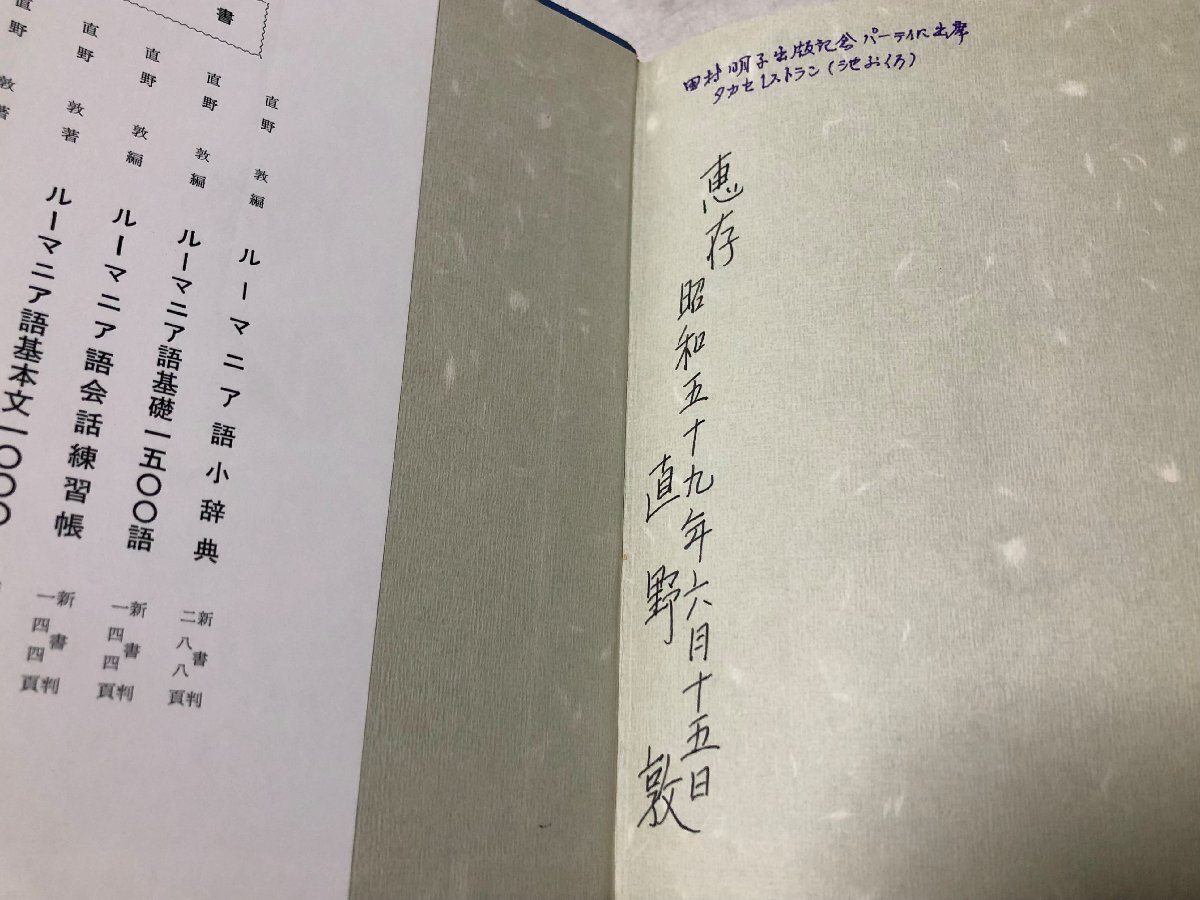 田村明子出版記念パーティに出席
タカセレストラン(池ぶくろ)
恵存
昭和五十九年六月十五日
直野敦
書
直野敦編 ルーマニア語小辞典 新書判 二八八頁
直野敦編 ルーマニア語基礎一五〇〇語 新書判 一四四頁
直野敦編 ルーマニア語会話練習帳 新書判 一四四頁
直野敦著 ルーマニア語基本文一〇〇〇
直野敦著